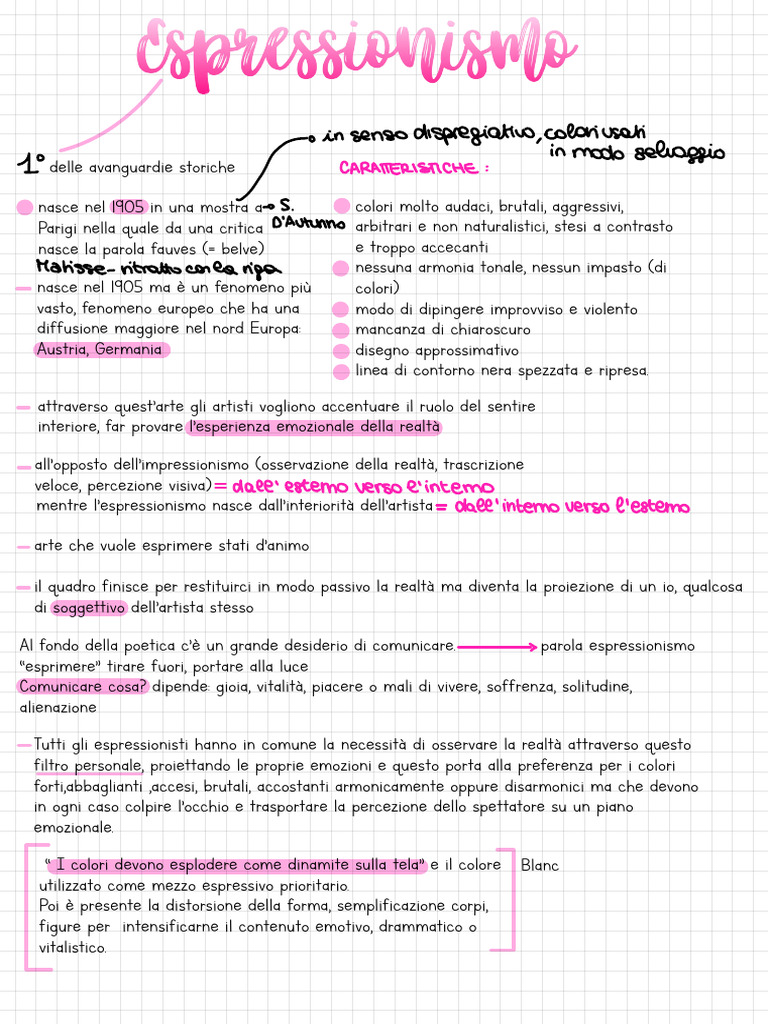 Espressionismo
in senso dispregiativo, colori usati
in modo selvaggio
1° delle avanguardie storiche
nasce nel 1905 in una mostra a
S.
D'Autunno
Parigi nella quale da una critica
nasce la parola fauves (= belve)
Matisse- ritratto con la riga
nasce nel 1905 ma è un fenomeno più
vasto, fenomeno europeo che ha una
diffusione maggiore nel nord Europa:
Austria, Germania
CARATTERISTICHE :
colori molto audaci, brutali, aggressivi,
arbitrari e non naturalistici, stesi a contrasto
e troppo accecanti
nessuna armonia tonale, nessun impasto (di
colori)
modo di dipingere improvviso e violento
mancanza di chiaroscuro
disegno approssimativo
linea di contorno nera spezzata e ripresa.
attraverso quest'arte gli artisti vogliono accentuare il ruolo del sentire
interiore, far provare l'esperienza emozionale della realtà
all'opposto dell'impressionismo (osservazione della realtà, trascrizione
veloce, percezione visiva) = dall' esterno verso l'interno
mentre l'espressionismo nasce dall'interiorità dell'artista = dall'interno verso l'esterno
arte che vuole esprimere stati d'animo
il quadro finisce per restituirci in modo passivo la realtà ma diventa la proiezione di un io, qualcosa
di soggettivo dell'artista stesso
Al fondo della poetica c'è un grande desiderio di comunicare. parola espressionismo
"esprimere" tirare fuori, portare alla luce
Comunicare cosa? dipende: gioia, vitalità, piacere o mali di vivere, soffrenza, solitudine,
alienazione
Tutti gli espressionisti hanno in comune la necessità di osservare la realtà attraverso questo
filtro personale, proiettando le proprie emozioni e questo porta alla preferenza per i colori
forti,abbaglianti ,accesi, brutali, accostanti armonicamente oppure disarmonici ma che devono
in ogni caso colpire l'occhio e trasportare la percezione dello spettatore su un piano
emozionale.
" I colori devono esplodere come dinamite sulla tela" e il colore
Blanc
utilizzato come mezzo espressivo prioritario.
Poi è presente la distorsione della forma, semplificazione corpi,
figure per intensificarne il contenuto emotivo, drammatico o
vitalistico.